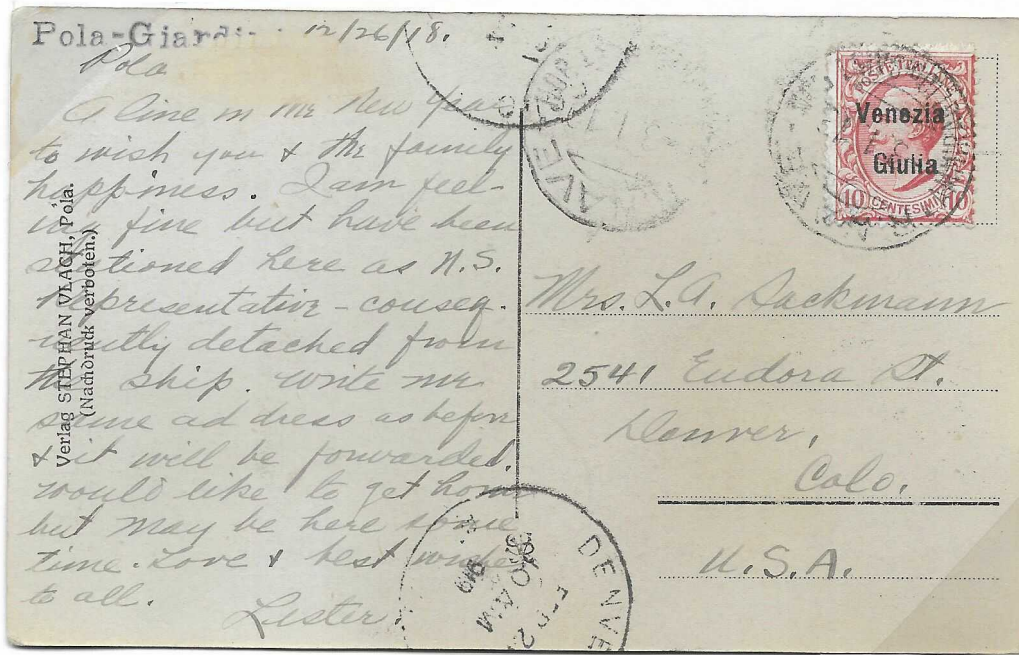 Pola-Giardi
12/26/18.
Pola
A line in the New Year
to wish you & the family
happiness. I am feel-
ing fine but have been
stationed here as U.S.
Representative - conseq-
uently detached from
the ship. Write me
same address as before
& it will be forwarded.
Would like to get home
but may be here some
time. Love & best wishes
to all.
Lester
Verlag STEPHAN VLACH, Pola.
(Nachdruck verboten.)
POSTE ITALIANE
Venezia
Giulia
10 CENTESIMI 10
Mrs. L.A. Sackmann
2541 Eudora St.
Denver,
Colo.
U.S.A.
DENVE
930 AM
FEB 2
1919